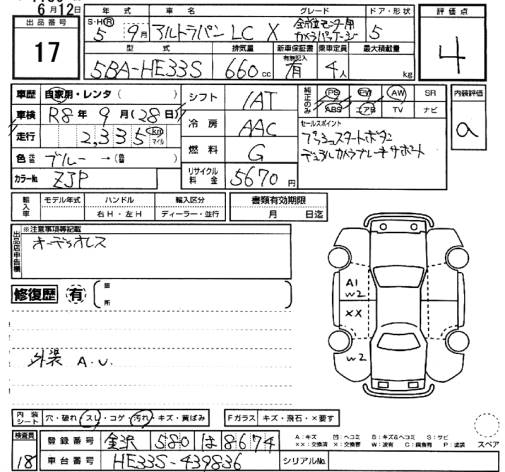 6月12日
出品番号
17
年式 車名 グレード ドア・形状 評価点
S・H・R 5 9月 アルトラパンLC X 全方位モニター用カメラパッケージ 5 4
型式 排気量 新車保証書 有無記入 乗車定員 最大積載量
5BA-HE33S 660cc 有 4人 kg
車歴 自家用・レンタ( )
シフト 1AT
純正のみ PS PW AW SR
ABS エアB TV ナビ
内装評価
a
車検 R8年9月(28日)
走行 2,335 Km マイル
冷房 AAC
セールスポイント
プッシュスタートボタン
デュアルカメラブレーキサポート
色 ブルー→( )
燃料 G
カラーNo. ZJP
リサイクル料金 5670円
輸入車 モデル年式 ハンドル 輸入区分
右H・左H ディーラー・並行
書類有効期限
月 日迄
出品店申告欄 ※注意事項等記載
オーディオレス
修復歴 有 箇所
外装 A.U.
A1
W2
XX
W2
内装シート 穴・破れ スレ・コゲ 汚れ・キズ・黄ばみ
Fガラス キズ・飛石・×要す
検査員
18
登録番号 金沢 580 は 8674
A:キズ
スペア
車台番号 HE33S-439836
シリアルNo.